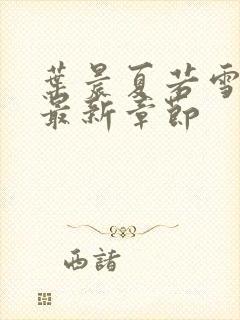 葉晨夏若雪
最新章節
西諸